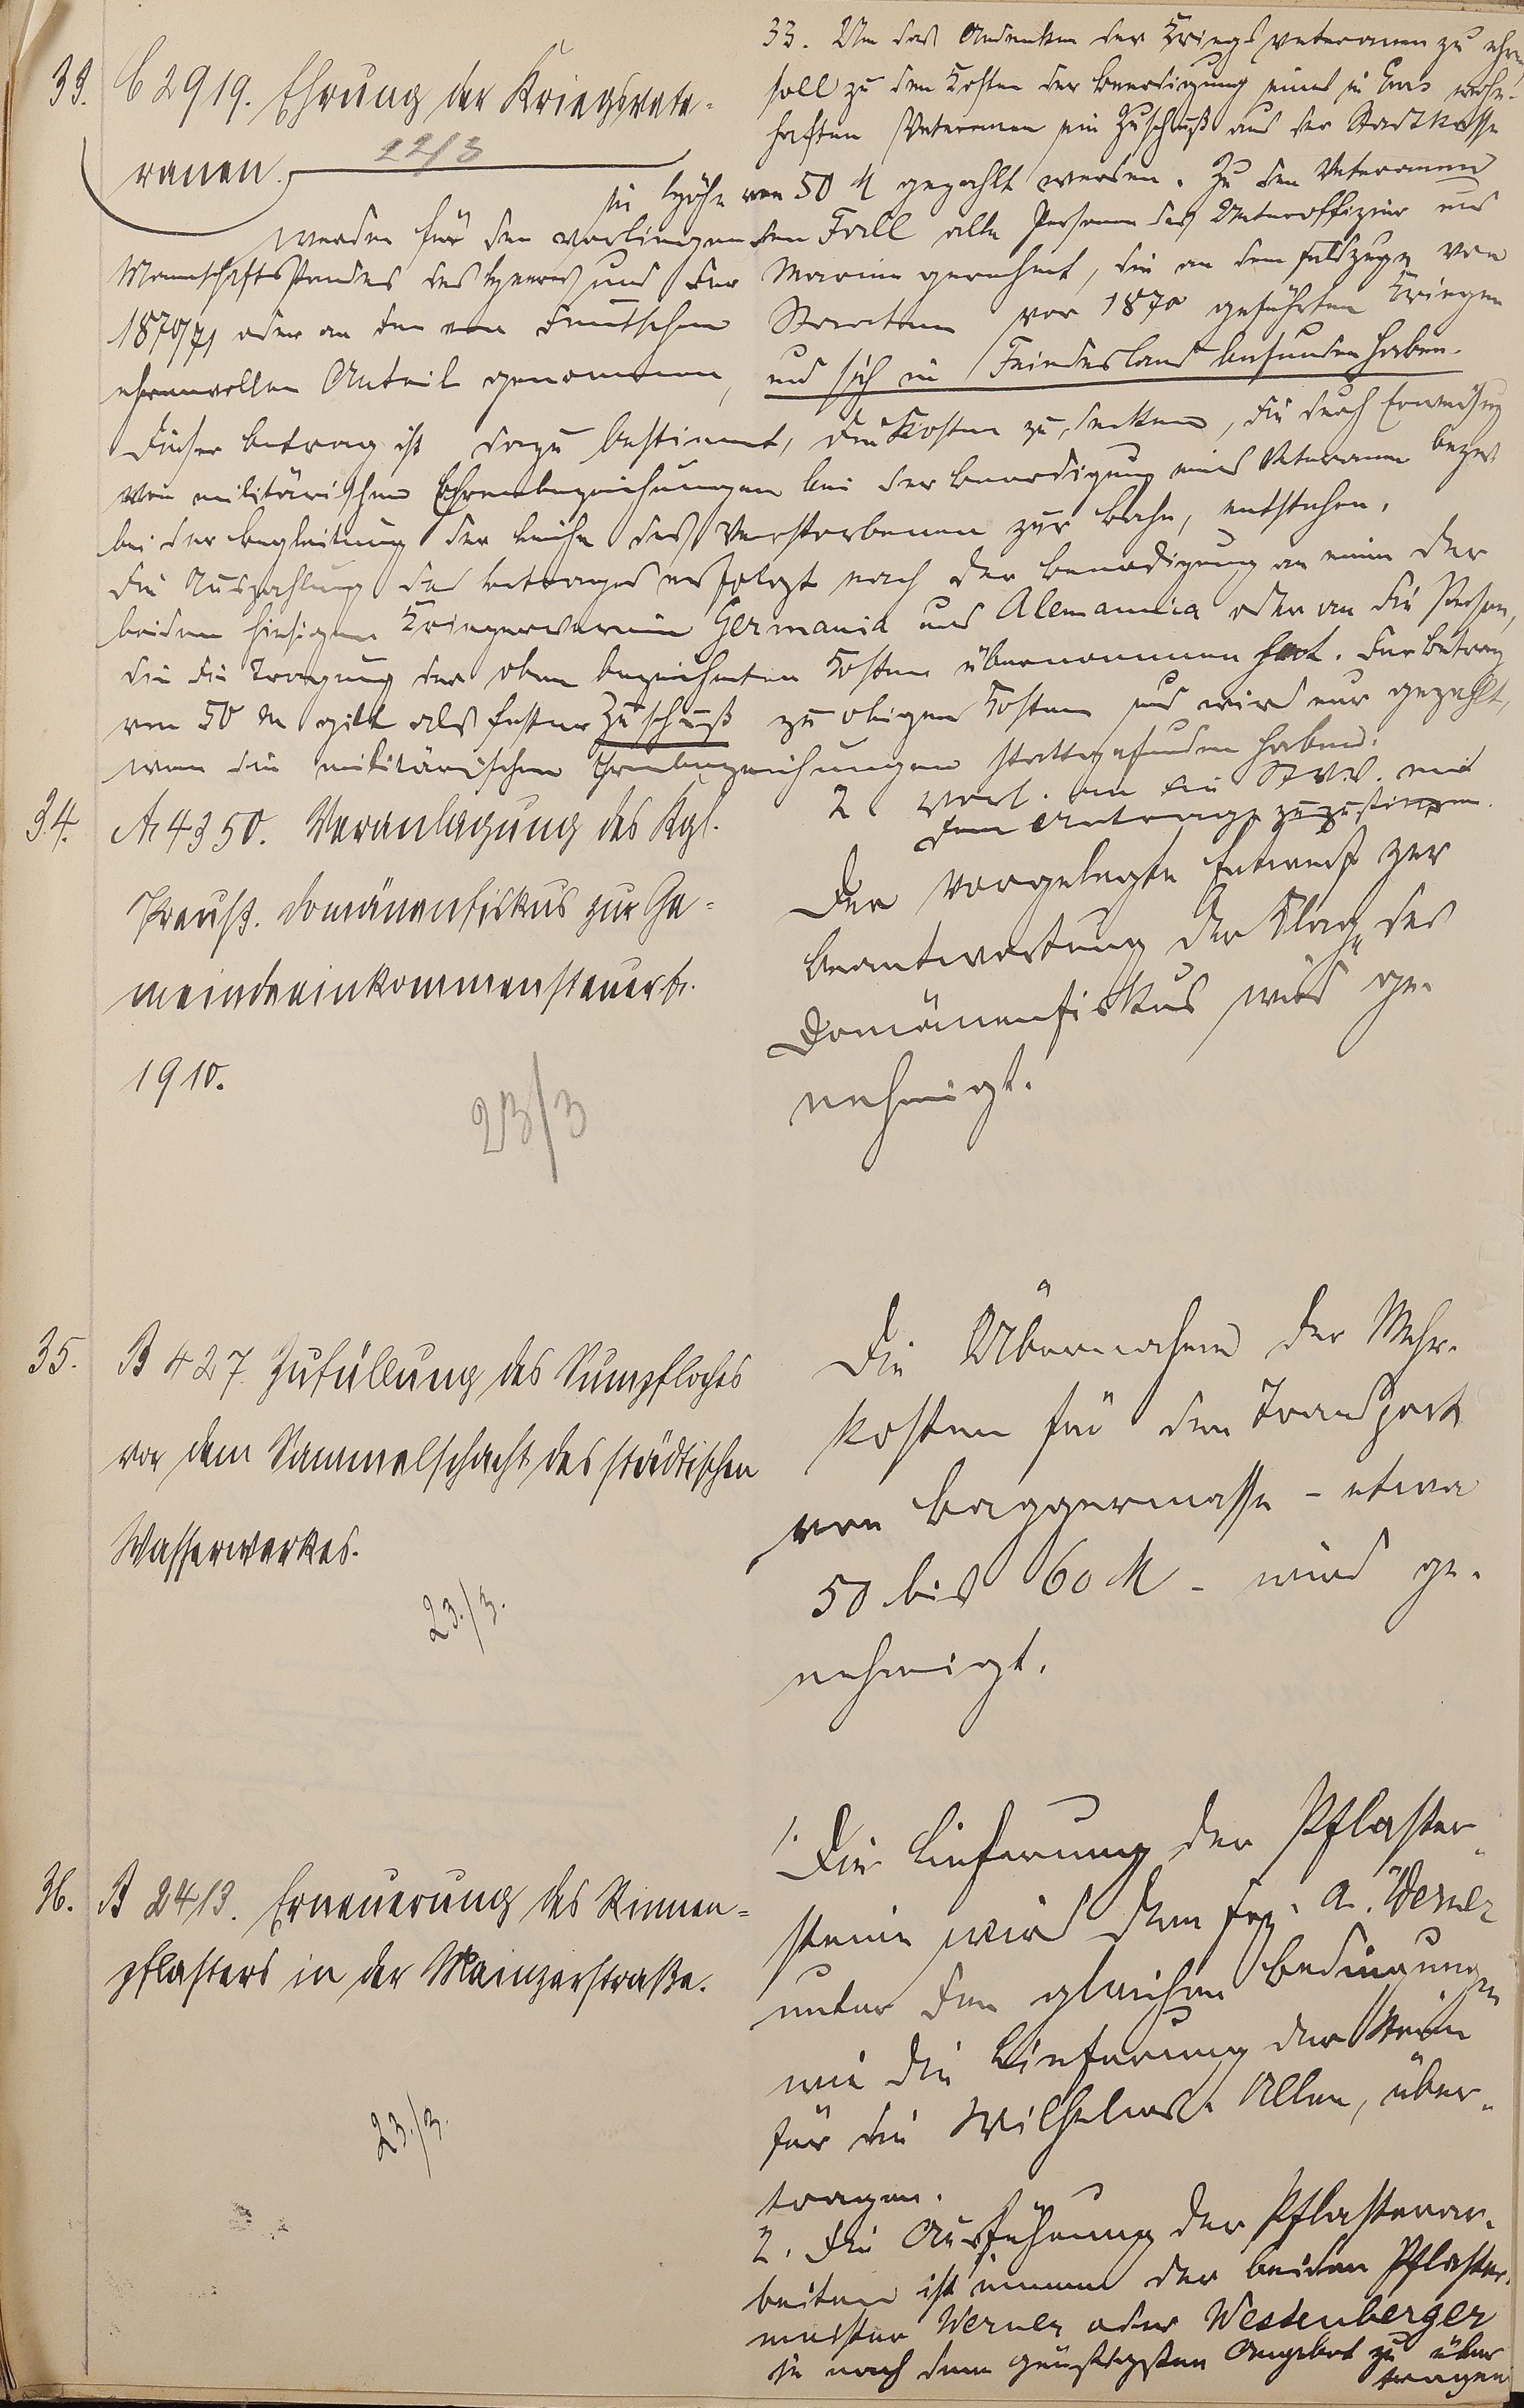 33. C 2919. Ehrung der Kriegsvete-
ranen.
22/3
33. Um das Andenken der Kriegsveteranen zu ehren,
soll zu den Kosten der Beerdigung eines in Ems wohn-
haften Veteranen ein Zuschuß aus der Stadtkasse
in Höhe von 50 M gezahlt werden. Zu den Veteranen
werden für den vorliegenden Fall alle Personen des Unteroffizier und
Mannschaftsstandes des Heeres und der Marine gerechnet, die an dem Feldzuge von
1870/71 oder an den von deutschen Staaten vor 1870 geführten Kriegen
ehrenvollen Anteil genommen, und sich in Feindesland befunden haben.
Dieser Betrag ist dazu bestimmt, die Kosten zu decken, die durch Erweisung
von militärischen Ehrenbezeichungen bei der Beerdigung eines Veteranen bezw.
bei der Begleitung der Leiche des Verstorbenen zur Bahn, entstehen.
Die Auszahlung des Betrages erfolgt nach der Beerdigung an einen der
beiden hiesigen Kriegervereine Germania und Alemannia oder an die Person,
die die Tragung der oben bezeichneten Kosten übernommen hat. Der Betrag
von 50 M gilt als fester Zuschuß zu obigen Kosten und wird nur gezahlt,
wenn die militärischen Ehrenbezeichungen stattgefunden haben.
2. Vorl. an die StVV. mit
dem Antrage zuzustimmen.
34. A 4350. Veranlagung des Kgl.
Preuß. Domänenfiskus zur Ge-
meindeeinkommensteuer f.
1910.
23/3
Der vorgelegte Entwurf zur
Beantwortung der Klage des
Domänenfiskus wird ge-
nehmigt.
35. B 427. Zufüllung des Sumpfloches
vor dem Sammelschacht des städtischen
Wasserwerkes.
23./3.
Die Übernahme der Mehr-
kosten für den Transport
von Baggermasse - etwa
50 bis 60 M - wird ge-
nehmigt.
36. B 2413. Erneuerung des Rinnen-
pflasters in der Mainzerstraße.
23./3.
1. Die Lieferung der Pflaster-
steine wird dem A. Werner
unter den gleichen Bedingungen
wie die Lieferung der Steine
für die Wilhelms-Allee, über-
tragen.
2. Die Ausführung der Pflasterar-
beiten ist einem der beiden Pflaster-
meister Werner oder Westenberger
je nach dem günstigsten Angebot zu über
tragen